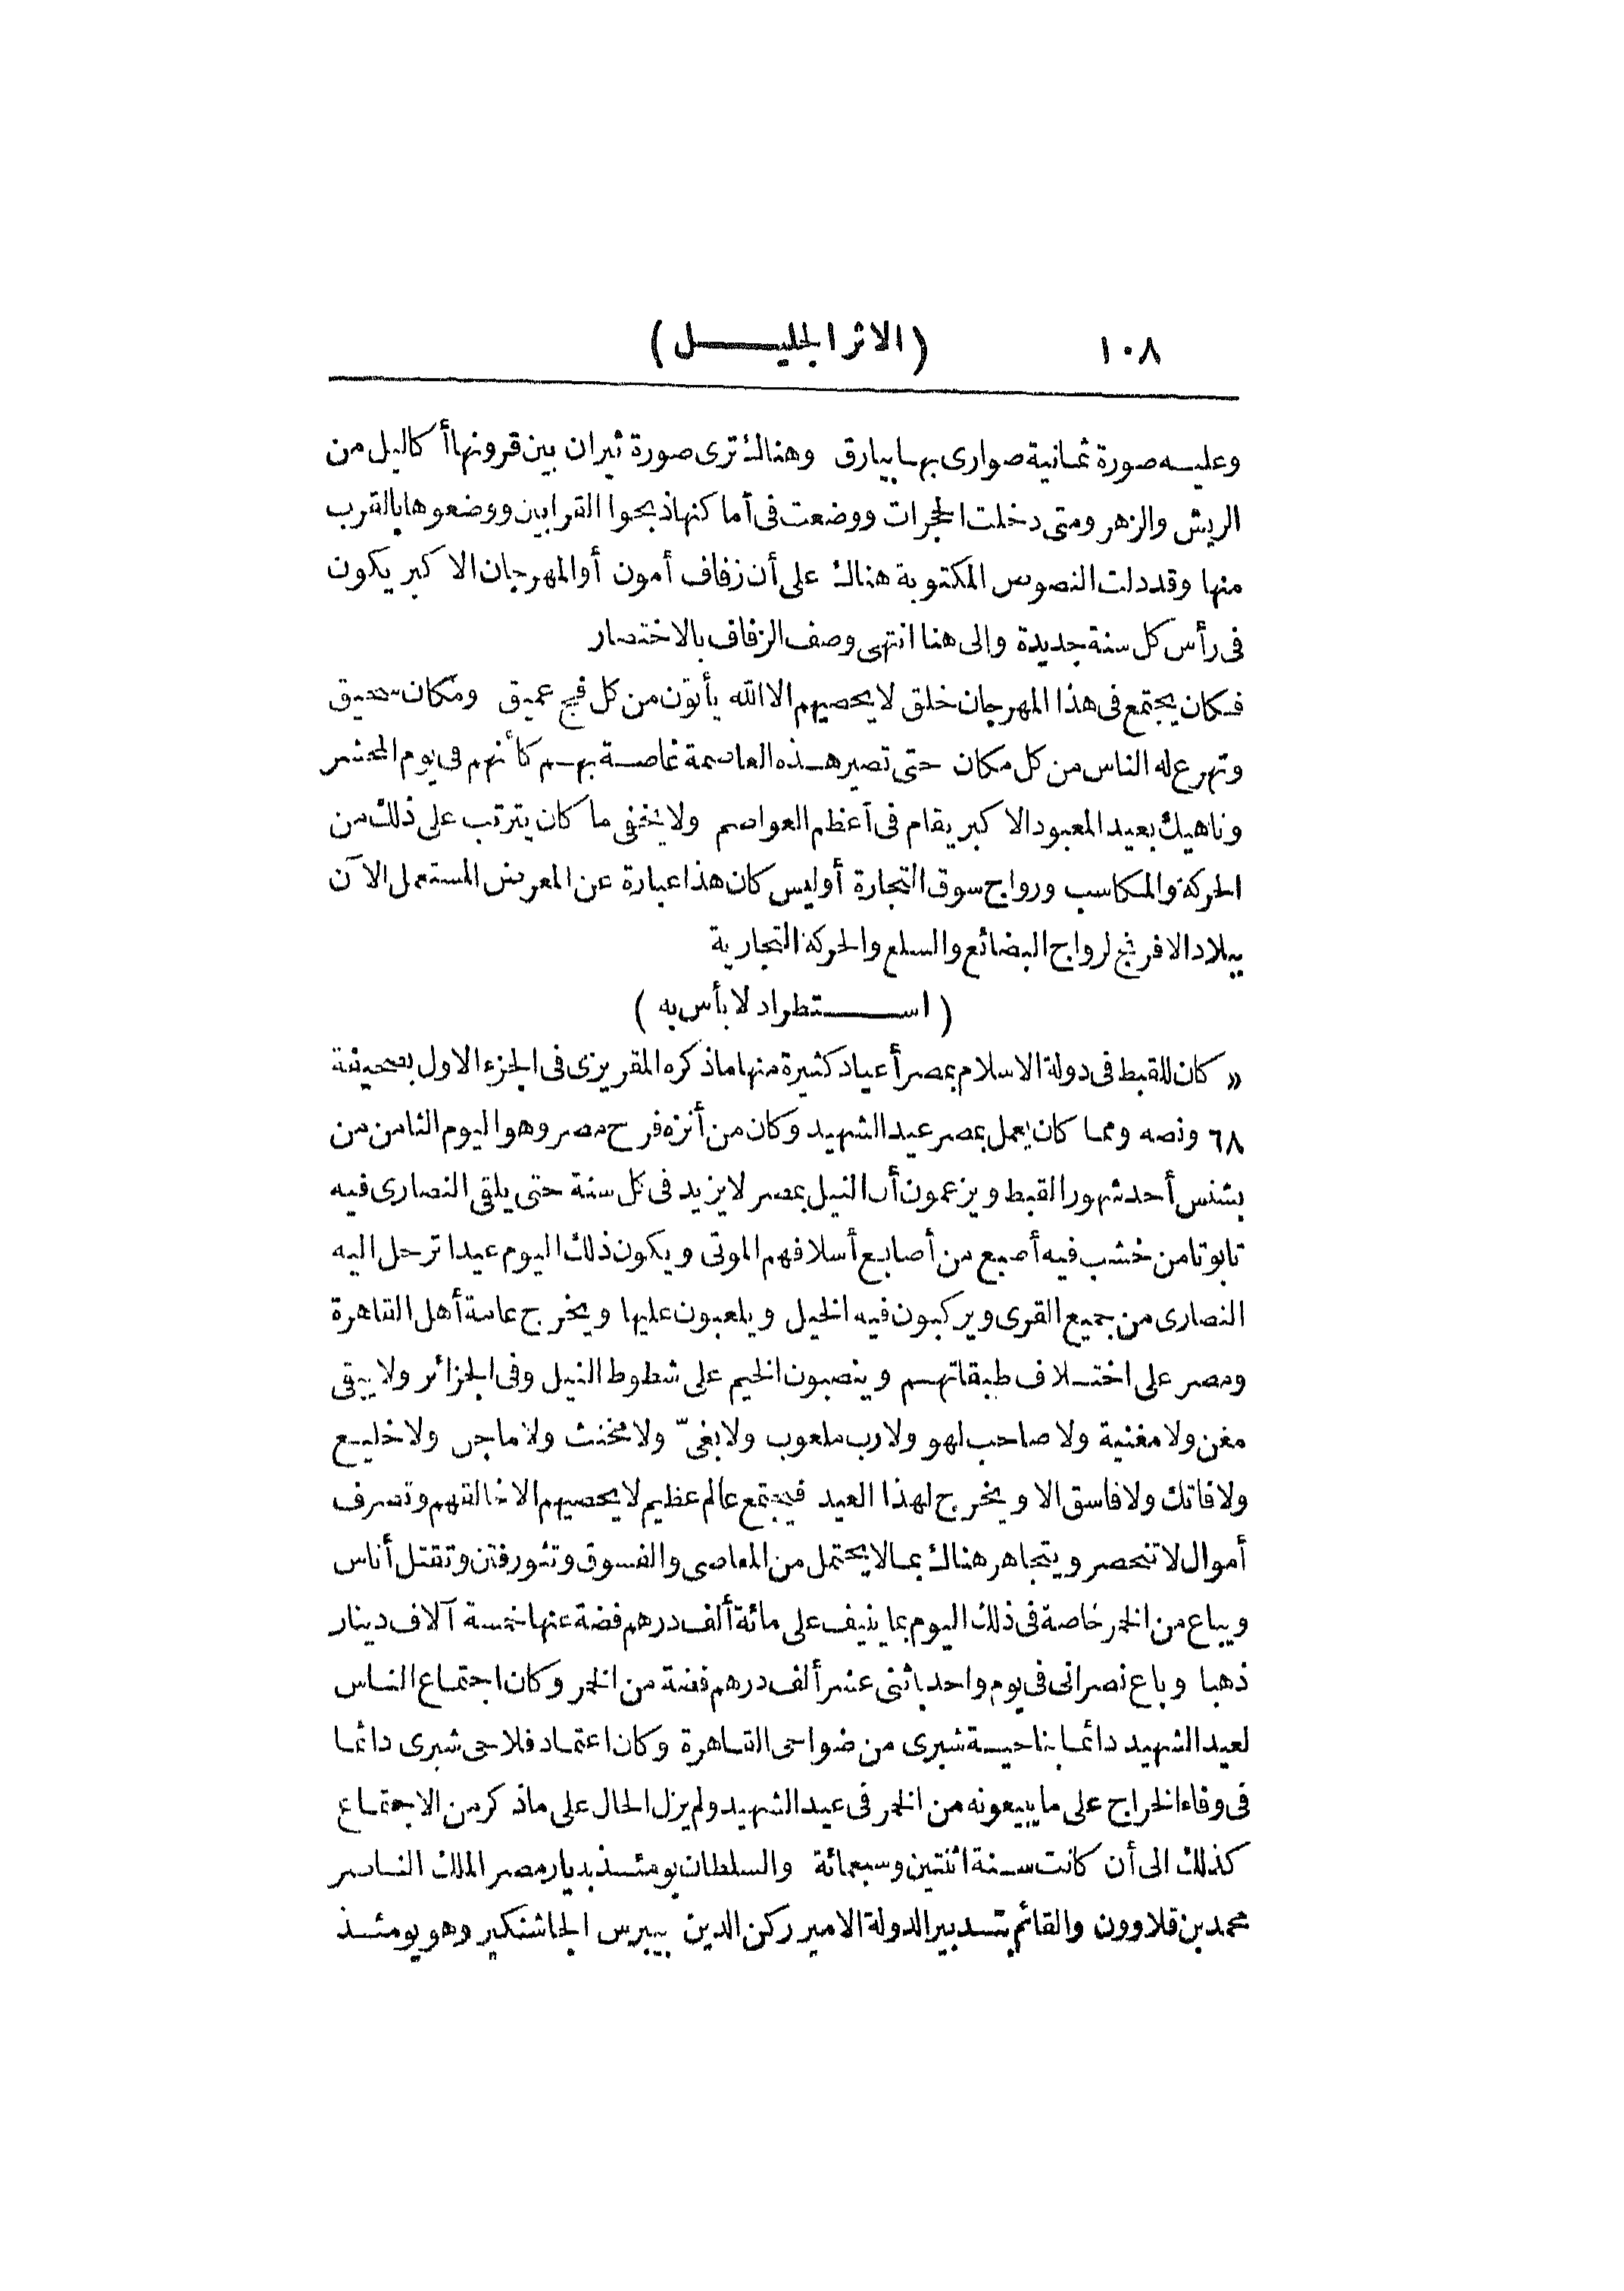 ١٠٨ (الاثر الجليل)
وعليه صورة ثمانية صوارى بها بيارق وهناك ترى صورة ثيران بين قرونها أكاليل من
الريش والزهر ومتى دخلت الحجرات ووضعت فى أماكنها ذبحوا القرابين ووضعوها بالقرب
منها وقد دلت النصوص المكتوبة هناك على أن زفاف أمون أو المهرجان الاكبر يكون
فى رأس كل سنة جديدة والى هنا انتهى وصف الزفاف بالاختصار
فكان يجتمع فى هذا المهرجان خلق لا يحصيهم الا الله يأتون من كل فج عميق ومكان سحيق
وتهرع له الناس من كل مكان حتى تصير هذه العاصمة غاصة بهم كأنهم فى يوم المحشر
وناهيك بعيد المعبود الاكبر يقام فى أعظم العواصم ولا يخفى ما كان يترتب على ذلك من
الحركة والمكاسب ورواج سوق التجارة أوليس كان هذا عبارة عن المعرض المستعمل الآن
ببلاد الافرنج لرواج البضائع والسلع والحركة التجارية
(استطراد لا بأس به)
« كان للقبط فى دولة الاسلام بمصر أعياد كثيرة منها ما ذكره المقريزى فى الجزء الاول بصحيفة
٦٨ ونصه ومما كان يعمل بمصر عيد الشهيد وكان من أنزه فرح مصر وهو اليوم الثامن من
بشنس أحد شهور القبط ويزعمون أن النيل بمصر لا يزيد فى كل سنة حتى يلقى النصارى فيه
تابوتا من خشب فيه أصبع من أصابع أسلافهم الموتى ويكون ذلك اليوم عيدا ترحل اليه
النصارى من جميع القرى ويركبون فيه الخيل ويلعبون عليها ويخرج عامة أهل القاهرة
ومصر على اختلاف طبقاتهم وينصبون الخيم على شطوط النيل وفى الجزائر ولا يبقى
مغن ولا مغنية ولا صاحب لهو ولا رب ملعوب ولا بغىّ ولا مخنث ولا ماجن ولا خليع
ولا فاتك ولا فاسق الا ويخرج لهذا العيد فيجتمع عالم عظيم لا يحصيهم الا خالقهم وتصرف
أموال لا تنحصر ويتجاهر هناك بما لا يحتمل من المعاصى والفسوق وتثور فتن وتقتل أناس
ويباع من الخمر خاصة فى ذلك اليوم بما ينيف على مائة ألف درهم فضة عنها خمسة آلاف دينار
ذهبا وباع نصرانى فى يوم واحد باثنى عشر ألف درهم فضة من الخمر وكان اجتماع الناس
لعيد الشهيد دائما بناحية شبرى من ضواحى القاهرة وكان اعتماد فلاحى شبرى دائما
فى وفاء الخراج على ما يبيعونه من الخمر فى عيد الشهيد ولم يزل الحال على ما ذكر من الاجتماع
كذلك الى أن كانت سنة اثنتين وسبعمائة والسلطان يومئذ بديار مصر الملك الناصر
محمد بن قلاوون والقائم بتدبير الدولة الامير ركن الدين بيبرس الجاشنكير وهو يومئذ